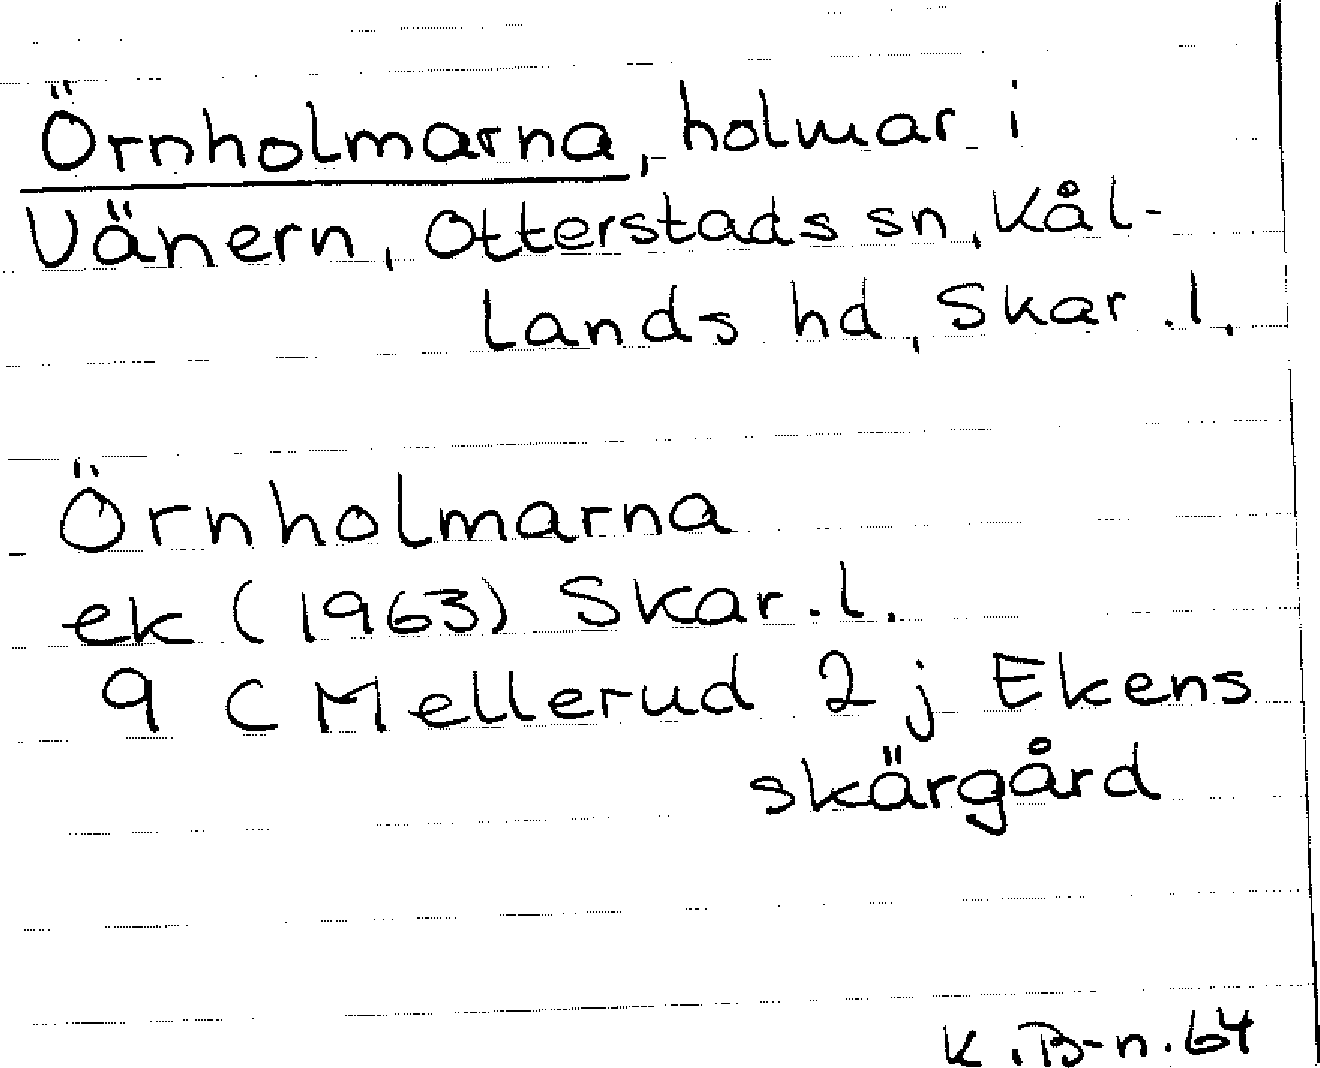 Örnholmarna, holmar i
Vänern, Otterstads sn, Kål-
lands hd, Skar.l.
Örnholmarna
ek (1963) Skar.l.
9 C Mellerud 2 j Ekens
skärgård
K.B-n.64